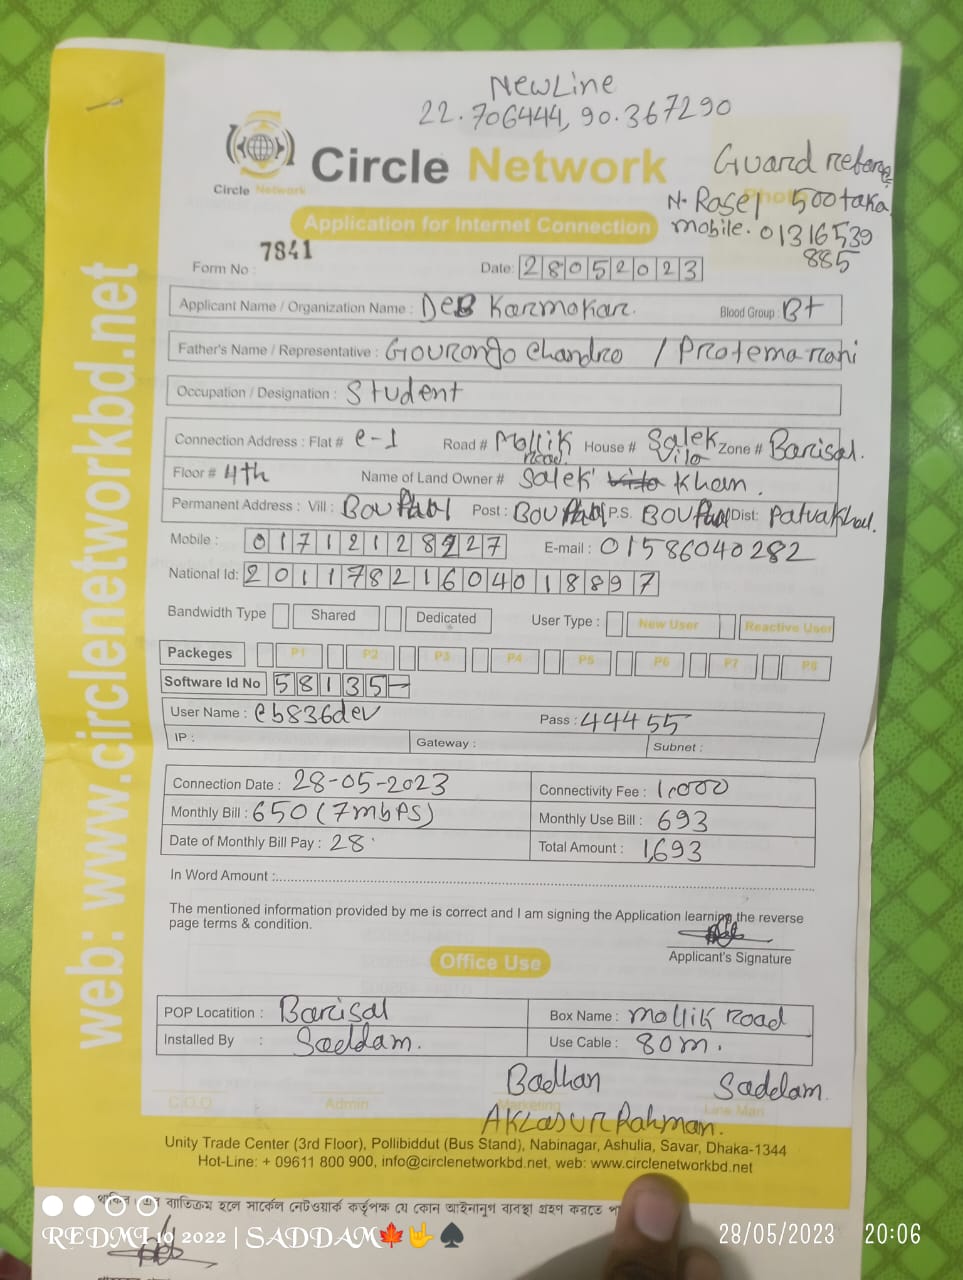 NewLine
22.706444, 90.367290
Circle Network
Circle Network
Guard
N. Rasel 500 taka
mobile. 01316539
885
Photo
Application for Internet Connection
Form No : 7841
Date: 28052023
Applicant Name / Organization Name : DEB Karmokar.
Blood Group : B+
Father's Name / Representative : Gourongo Chandro / Protema rani
Occupation / Designation : Student
Connection Address : Flat # e-1 Road # Mollik Road House # Salek Vila Zone # Barisal.
Floor # 4th Name of Land Owner # Salek Khan.
Permanent Address : Vill : Post : P.S. Dist:
Mobile : 01712128927 E-mail : 01586040282
National Id: 20117821604018897
Bandwidth Type Shared Dedicated User Type : New User Reactive User
Packeges P1 P2 P3 P4 P5 P6 P7 P8
Software Id No 58135
User Name : eb836dev Pass : 44455
IP : Gateway : Subnet :
Connection Date : 28-05-2023 Connectivity Fee : 1,000
Monthly Bill : 650 (7mbps) Monthly Use Bill : 693
Date of Monthly Bill Pay : 28 Total Amount : 1,693
In Word Amount :
The mentioned information provided by me is correct and I am signing the Application learning the reverse
page terms & condition.
Applicant's Signature
Office Use
POP Locatition : Barisal Box Name : mollik road
Installed By : Saddam. Use Cable : 80m.
Badhan Saddam.
C.O.O Admin Marketing Line Man
Aklasur Rahman.
Unity Trade Center (3rd Floor), Pollibiddut (Bus Stand), Nabinagar, Ashulia, Savar, Dhaka-1344
Hot-Line: + 09611 800 900, info@circlenetworkbd.net, web: www.circlenetworkbd.net
web: www.circlenetworkbd.net
ব্যতিক্রম হলে সার্কেল নেটওয়ার্ক কর্তৃপক্ষ যে কোন আইনানুগ ব্যবস্থা গ্রহণ করতে
REDMI 10 2022 | SADDAM🍁🤟♠
28/05/2023 20:06